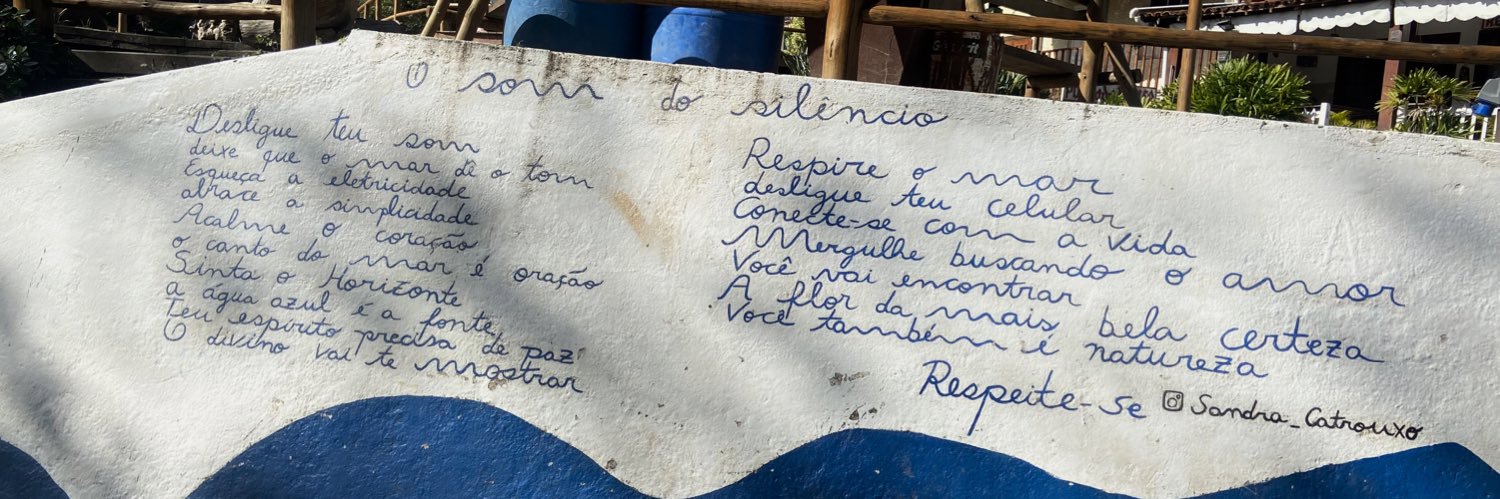 O som do silêncio
Desligue teu som
deixe que o mar dê o tom
Esqueça a eletricidade
abrace a simplicidade
Acalme o coração
o canto do mar é oração
Sinta o Horizonte
a água azul é a fonte
Teu espírito precisa de paz
O divino vai te mostrar
Respire o mar
desligue teu celular
Conecte-se com a vida
Mergulhe buscando o amor
Você vai encontrar
A flor da mais bela certeza
Você também é natureza
Respeite-se
Sandra_Catrouxo